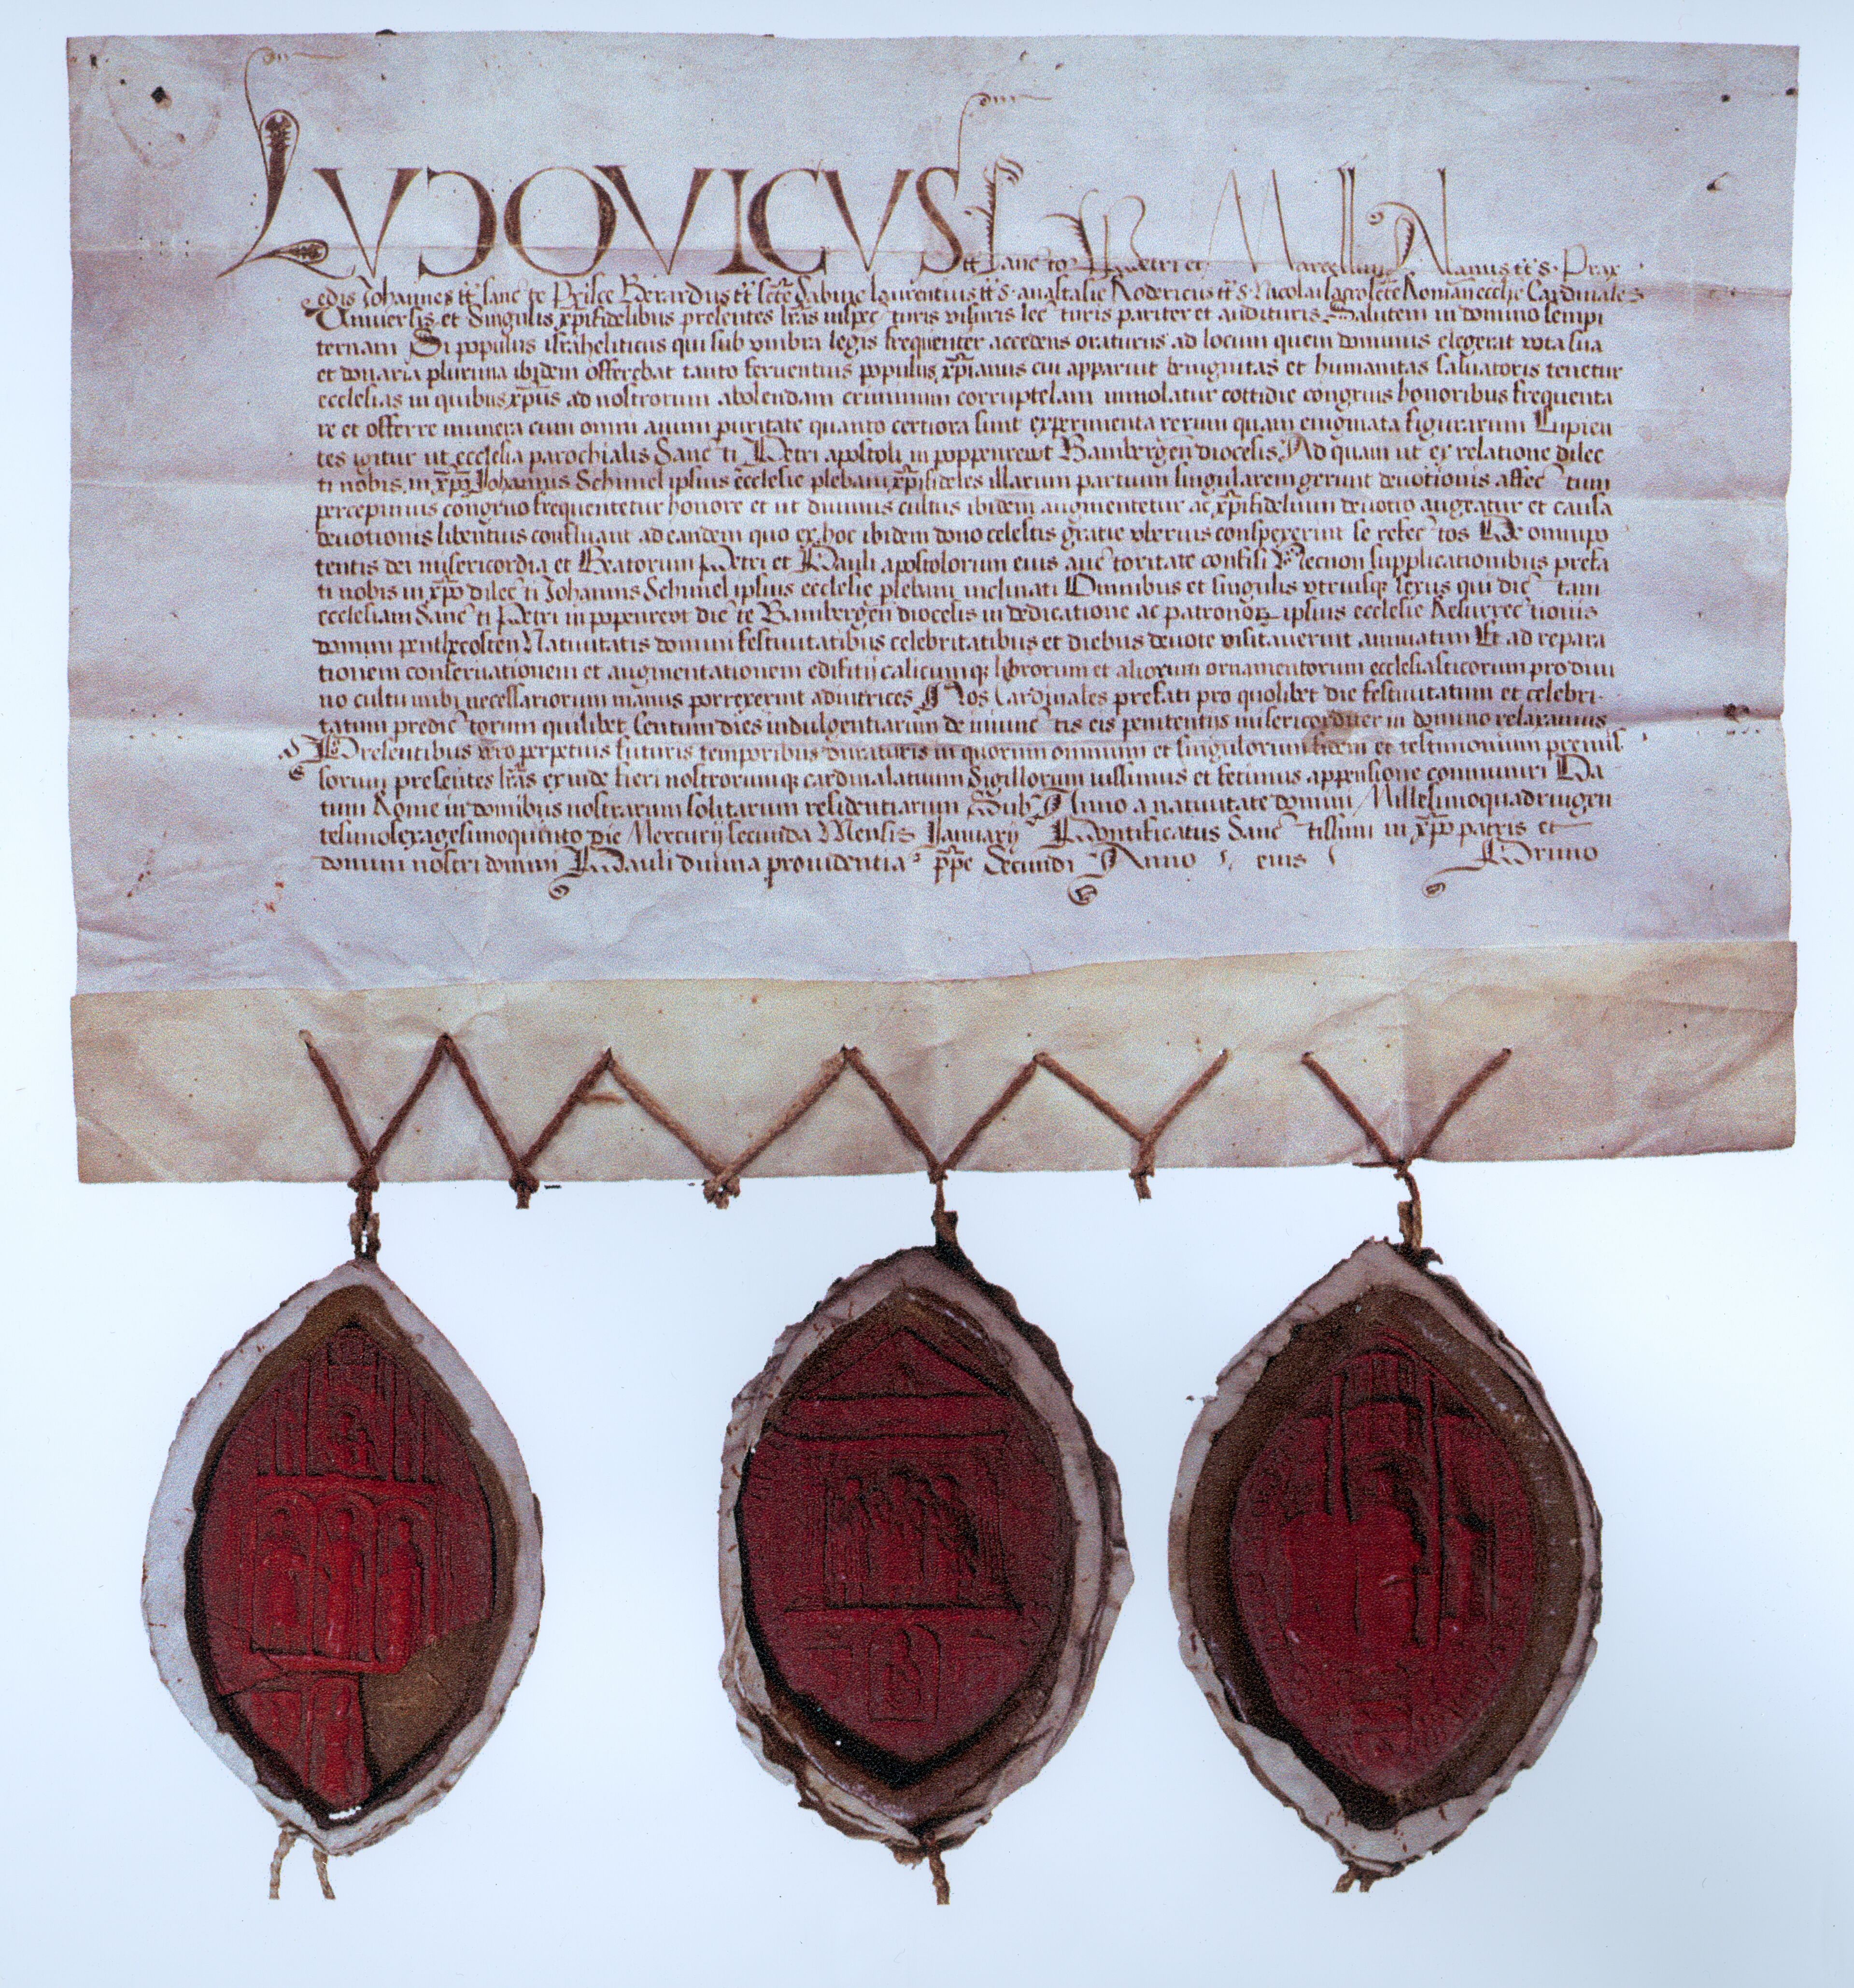 LUDOVICUS tt Sancto Petri et Marcellini Alanus tt̃ s. Prax
edis Johannes tt̃ sancte Prisce Berardus tt̃ scr̃e Sabine Laurentius tt̃ s. anastasie Rodericus tt̃ s. Nicolai sacroscr̃e Roman̄ ecclie Cardinales
Universis et Singulis xp̄ifidelibus presentes lr̃as inspecturis visuris lecturis pariter et audituris Salutem in domino sempi
ternam Si populus israheliticus qui sub umbra legis frequenter accedens oraturus ad locum quem dominus elegerat vota sua
et donaria plurima ibidem offerebat tanto ferventius populus xp̄ianus cui apparuit benignitas et humanitas salvatoris tenetur
ecclesias in quibus xp̄us ad nostrorum abolendam criminum corruptelam immolatur cottidie congruis honoribus frequenta
re et offerre munera cum omni animi puritate quanto certiora sunt experimenta rerum quam enigmata figurarum Cupien
tes igitur ut ecclesia parochialis Sancti Petri apostoli in poppenrewt Bambergen̄ diocesis Ad quam ut ex relatione dilec
ti nobis in xp̄o Johannis Schimel ipsius ecclesie plebani xp̄ifideles illarum partium singularem gerunt devotionis affectum
percepimus congruo frequentetur honore et ut divinus cultus ibidem augmentetur ac xp̄ifidelium devotio augeatur et causa
devotionis libentius confluant ad eandem quo ex hoc ibidem dono celestis gratie uberius conspexerint se refectos De omnipo
tentis dei misericordia et Beatorum Petri et Pauli apostolorum eius auctoritate confisi Necnon supplicationibus prefa
ti nobis in xp̄o dilecti Johannis Schimel ipsius ecclesie plebani inclinati Omnibus et singulis utriusque sexus qui dictam
ecclesiam Sancti Petri in popenrewt dicte Bambergen̄ diocesis in dedicatione ac patronorꝝ ipsius ecclesie Resurrectionis
domini penthecosten Nativitatis domini festivitatibus celebritatibus et diebus devote visitaverint annuatim Et ad repara
tionem conservationem et augmentationem edifitij calicumqꝫ librorum et aliorum ornamentorum ecclesiasticorum pro divi
no cultu inibi necessariorum manus porrexerint adiutrices Nos Cardinales prefati pro quolibet die festivitatum et celebri-
tatum predictorum quilibet Centum dies indulgentiarum de iniunctis eis penitentiis misericorditer in domino relaxamus
Presentibus vero perpetuis futuris temporibus duraturis in quorum omnium et singulorum fidem et testimonium premis
sorum presentes lr̃as exinde fieri nostrorumqꝫ cardinalatuum Sigillorum iussimus et fecimus appensione communiri Da
tum Rome in domibus nostrarum solitarum residentiarum Sub Anno a nativitate domini Millesimoquadringen
tesimosexagesimoquinto Die Mercurij secunda Mensis Januarij Pontificatus Sanctissimi in xp̄o patris et
domini nostri domini Pauli divina providentia pp̄e Secundi Anno eius Primo